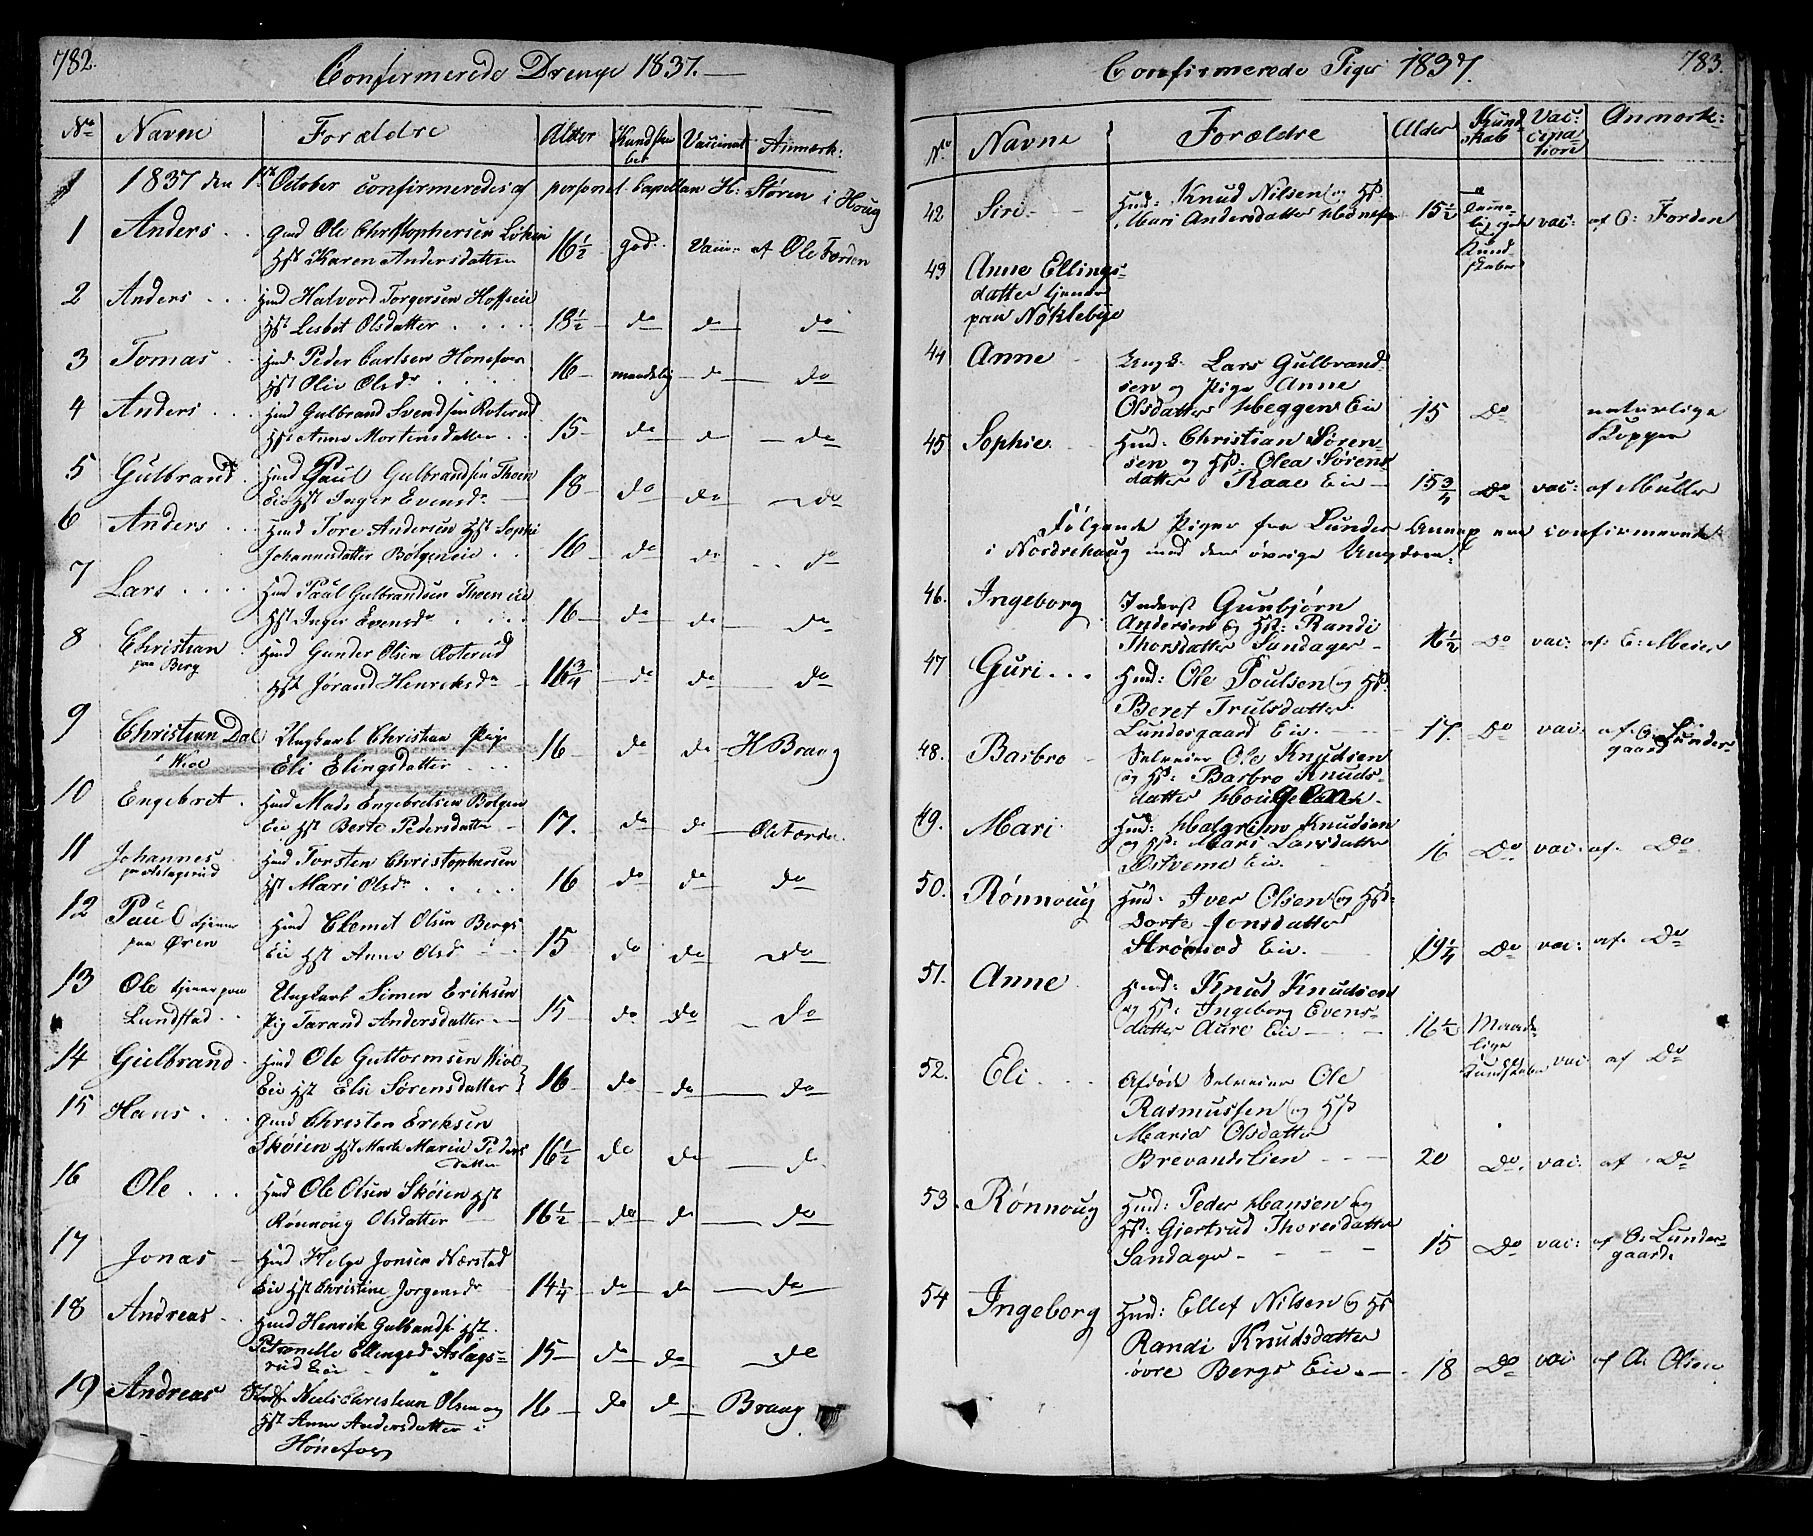 782.
Confirmerede Drenge 1837.
No Navne Forældre Alder Kundska ber Vaccinat Anmærk:
1837 den 1ste October confirmeredes af personel Capellan H: Støren i Houg
1 Anders Gmd Ole Christophersen Løken
Hst Karen Andersdatter 16½ god Vacin af Ole Førden
2 Anders Hmd Halvord Torgersen Hoffseie
Hst Lisbet Olsdatter 18½ do do do
3 Tomas Hmd Peder Carlsen Honefoss
Hst Olia Olsdr 16 maadelig do do
4 Anders Hmd Gulbrand Svendsen Roterud
Hst Anne Mortensdatter 15 do do do
5 Gulbrand Hmd Paul Gulbrandsen Thoen
Eie Hst Inger Evensdr 18 do do do
6 Anders Hmd Tore Andersen Hst Sophi
Johannesdatter Bolgeneie 16 do do do
7 Lars Hmd Paul Gulbrandsen Thoen eie
Hst Inger Evensdr 16 do do do
8 Christian paa Berg Hmd Gunder Olsen Roterud
Hst Jørand Henriksdr 16¾ do do do
9 Christian Dal i Hiol Ungkarl Christian Pige
Eli Elingsdatter 16 do do H Braag
10 Engebret Hmd Mads Engebretsen Bølgen
Eie Hst Berte Pedersdatter 17. do do Ole Førde
11 Johannes paa Aslagsrud Hmd Torsten Christophersen
Hst Mari Olsdr 16 do do do
12 Paul tjener paa Øren Hmd Clemet Olsen Bergs
Eie Hst Anne Olsd 15 do do do
13 Ole tjener paa Lundstad Ungkarl Simen Eriksen
Pig Tarand Andersdatter 15 do do do
14 Gulbrand Hmd Ole Guttormsen Hiol
Eie Hst Elsi Sørensdatter 16 do do do
15 Hans Gmd Christen Eriksen
Skøien Hst Marte Marie Peders
datter 16½ do do do
16 Ole Hmd Ole Olsen Skøien Hst
Rønnoug Olsdatter 16½ do do do
17 Jonas Hmd Helge Jonsen Nærstad
Eie Hst Christine Jorgensdr 14¼ do do do
18 Andreas Hmd Henrik Gulbrands: Hst.
Petronelle Ellingsd Aslags=
rud Eie 15 do do do
19 Andreas Niels Christian Olsen og
Hst Anne Andersdatter i
Hønefos 16 do do Braag
783.
Confirmerede Piger 1837.
No Navne Forældre Alder Kund skab Vac: cina= tion Anmærk:
42 Siri Hmd: Knud Nilsen og Hst:
Mari Andersdatter Hønefos 15½ vac: af O: Forden
43 Anne Ellings=
datter tjener
paa Nøklebye
44 Anne Ungk. Lars Gulbrand
sen og Pige Anne
Olsdatter Heggen Eie 15 Do naturlige Kopper
45 Sophie Hmd: Christian Søren=
sen og Hst: Olea Sørens
datter Raae Eie 15¾ Do vac: af Muller
Følgende Piger fra Lunder Annex ere confirmerede
i Nordrehaug med den øvrige Ungdom:
46. Ingeborg Inderst Gunbjørn
Andersen og Hst: Randi
Thorsdatter Sandager 16½ Do vac: af E: Meier
47 Guri Hmd: Ole Poulsen og Hst:
Beret Trulsdatter
Lundesgaard Eie. 17. Do vac: af O: Lunder=
gaard
48. Barbro Selveier Ole Knudsen
og Hst: Barbro Knuds=
datter Hougen
49. Mari Hmd: Halgrim Knudsen
og Hst: Mari Larsdatter
Østveme Eie. 16 Do vac: af. Do
50. Rønnoug Hmd: Iver Olsen og Hst:
Dorte Jonsdatter
Strømsod Eie. 19¼ Do vac: af. Do
51. Anne Hmd: Knud Knudsen
og Hst: Ingeborg Evens=
datter Aure Eie 16½ Maade=
lige
Kundskaber vac: af Do
52. Eli Afdøde Selveier Ole
Rasmussen og Hst
Maria Olsdatter
Brevandslien 20 Do. vac: af Do
53. Rønnoug Hmd: Peder Hansen og
Hst: Giertrud Thoresdatter
Sandager 15 Do vac: af O: Lunder=
gaard.
54 Ingeborg Hmd: Ellef Nilsen og Hst
Randi Knudsdatter
øvre Bergs Eie 18 Do vac: af A: Olsen